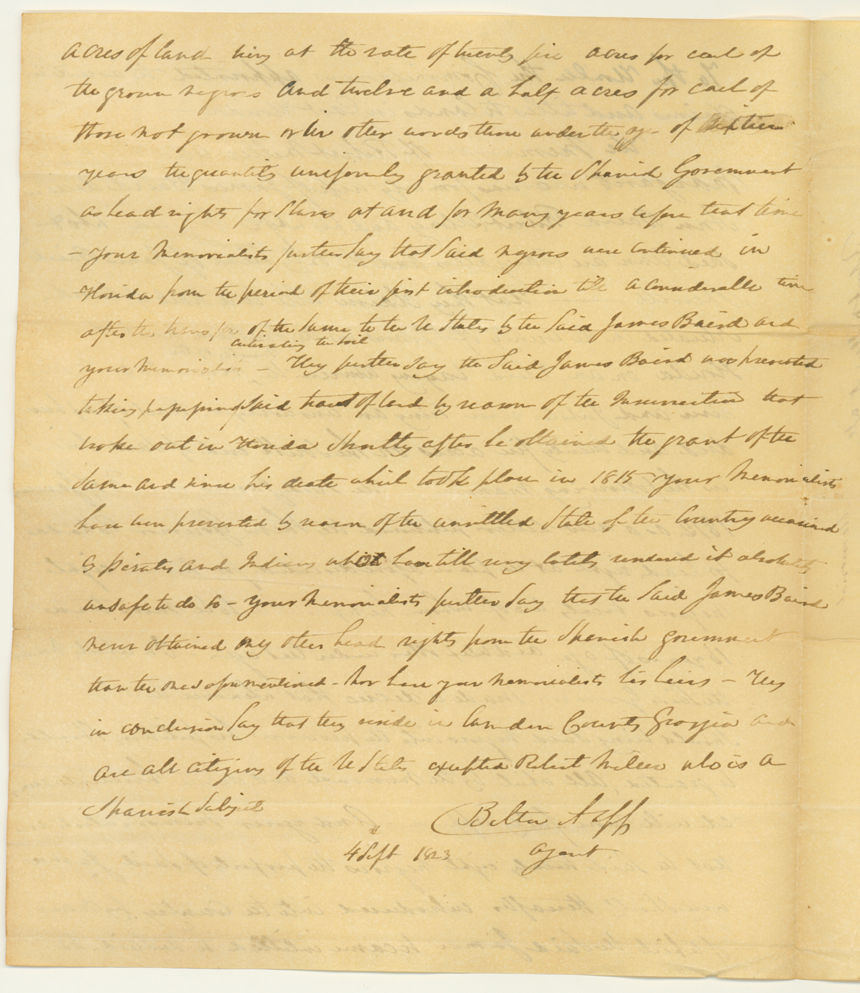 acres of land being at the rate of twenty five acres for each of
the grown negroes And twelve and a half acres for each of
those not grown or in other words those under the age of sixteen
years the quantity uniformly granted by the Spanish Government
as head rights for Slaves at and for many years before that time
– Your Memorialists further Say that Said negroes were continued in
Florida from the period of their first introduction till a considerable time
after the transfer of the Same to the U States by the Said James Baird and
cultivating the Soil
your Memorialists – They further Say the Said James Baird was prevented
taking possession of Said tract of land by reason of the Insurrection that
broke out in Florida Shortly after he obtained the grant of the
Same and since his death which took place in 1815 your Memorialists
have been prevented by reason of the unsettled State of the Country occasioned
by Pirates and Indians which have till very lately rendered it absolutely
unsafe to do so – Your Memorialists further Say that the Said James Baird
never obtained any other head rights from the Spanish government
than the ones aforementioned – Nor have your Memorialists his heirs – They
in conclusion Say that they reside in Camden County Georgia and
are all citizens of the U States excepted Robert who is a
Spanish Subject
Belton A Copp
4 Sept 1823 agent